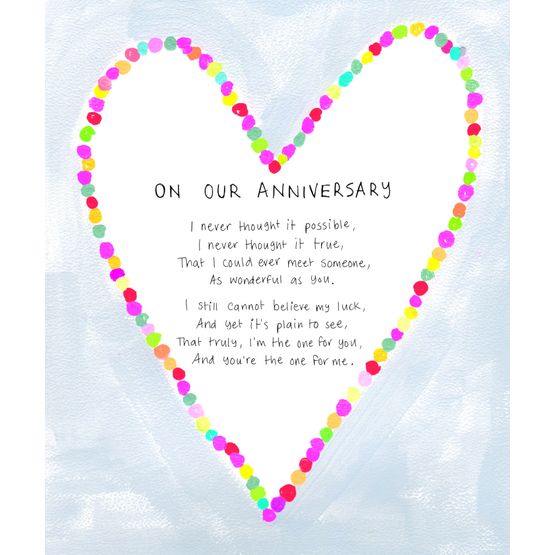 ON OUR ANNIVERSARY
I never thought it possible,
I never thought it true,
That I could ever meet someone,
As wonderful as you.
I still cannot believe my luck,
And yet it's plain to see,
That truly, I'm the one for you,
And you're the one for me.